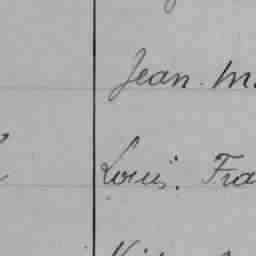 Jean. M.
Louis. Fra